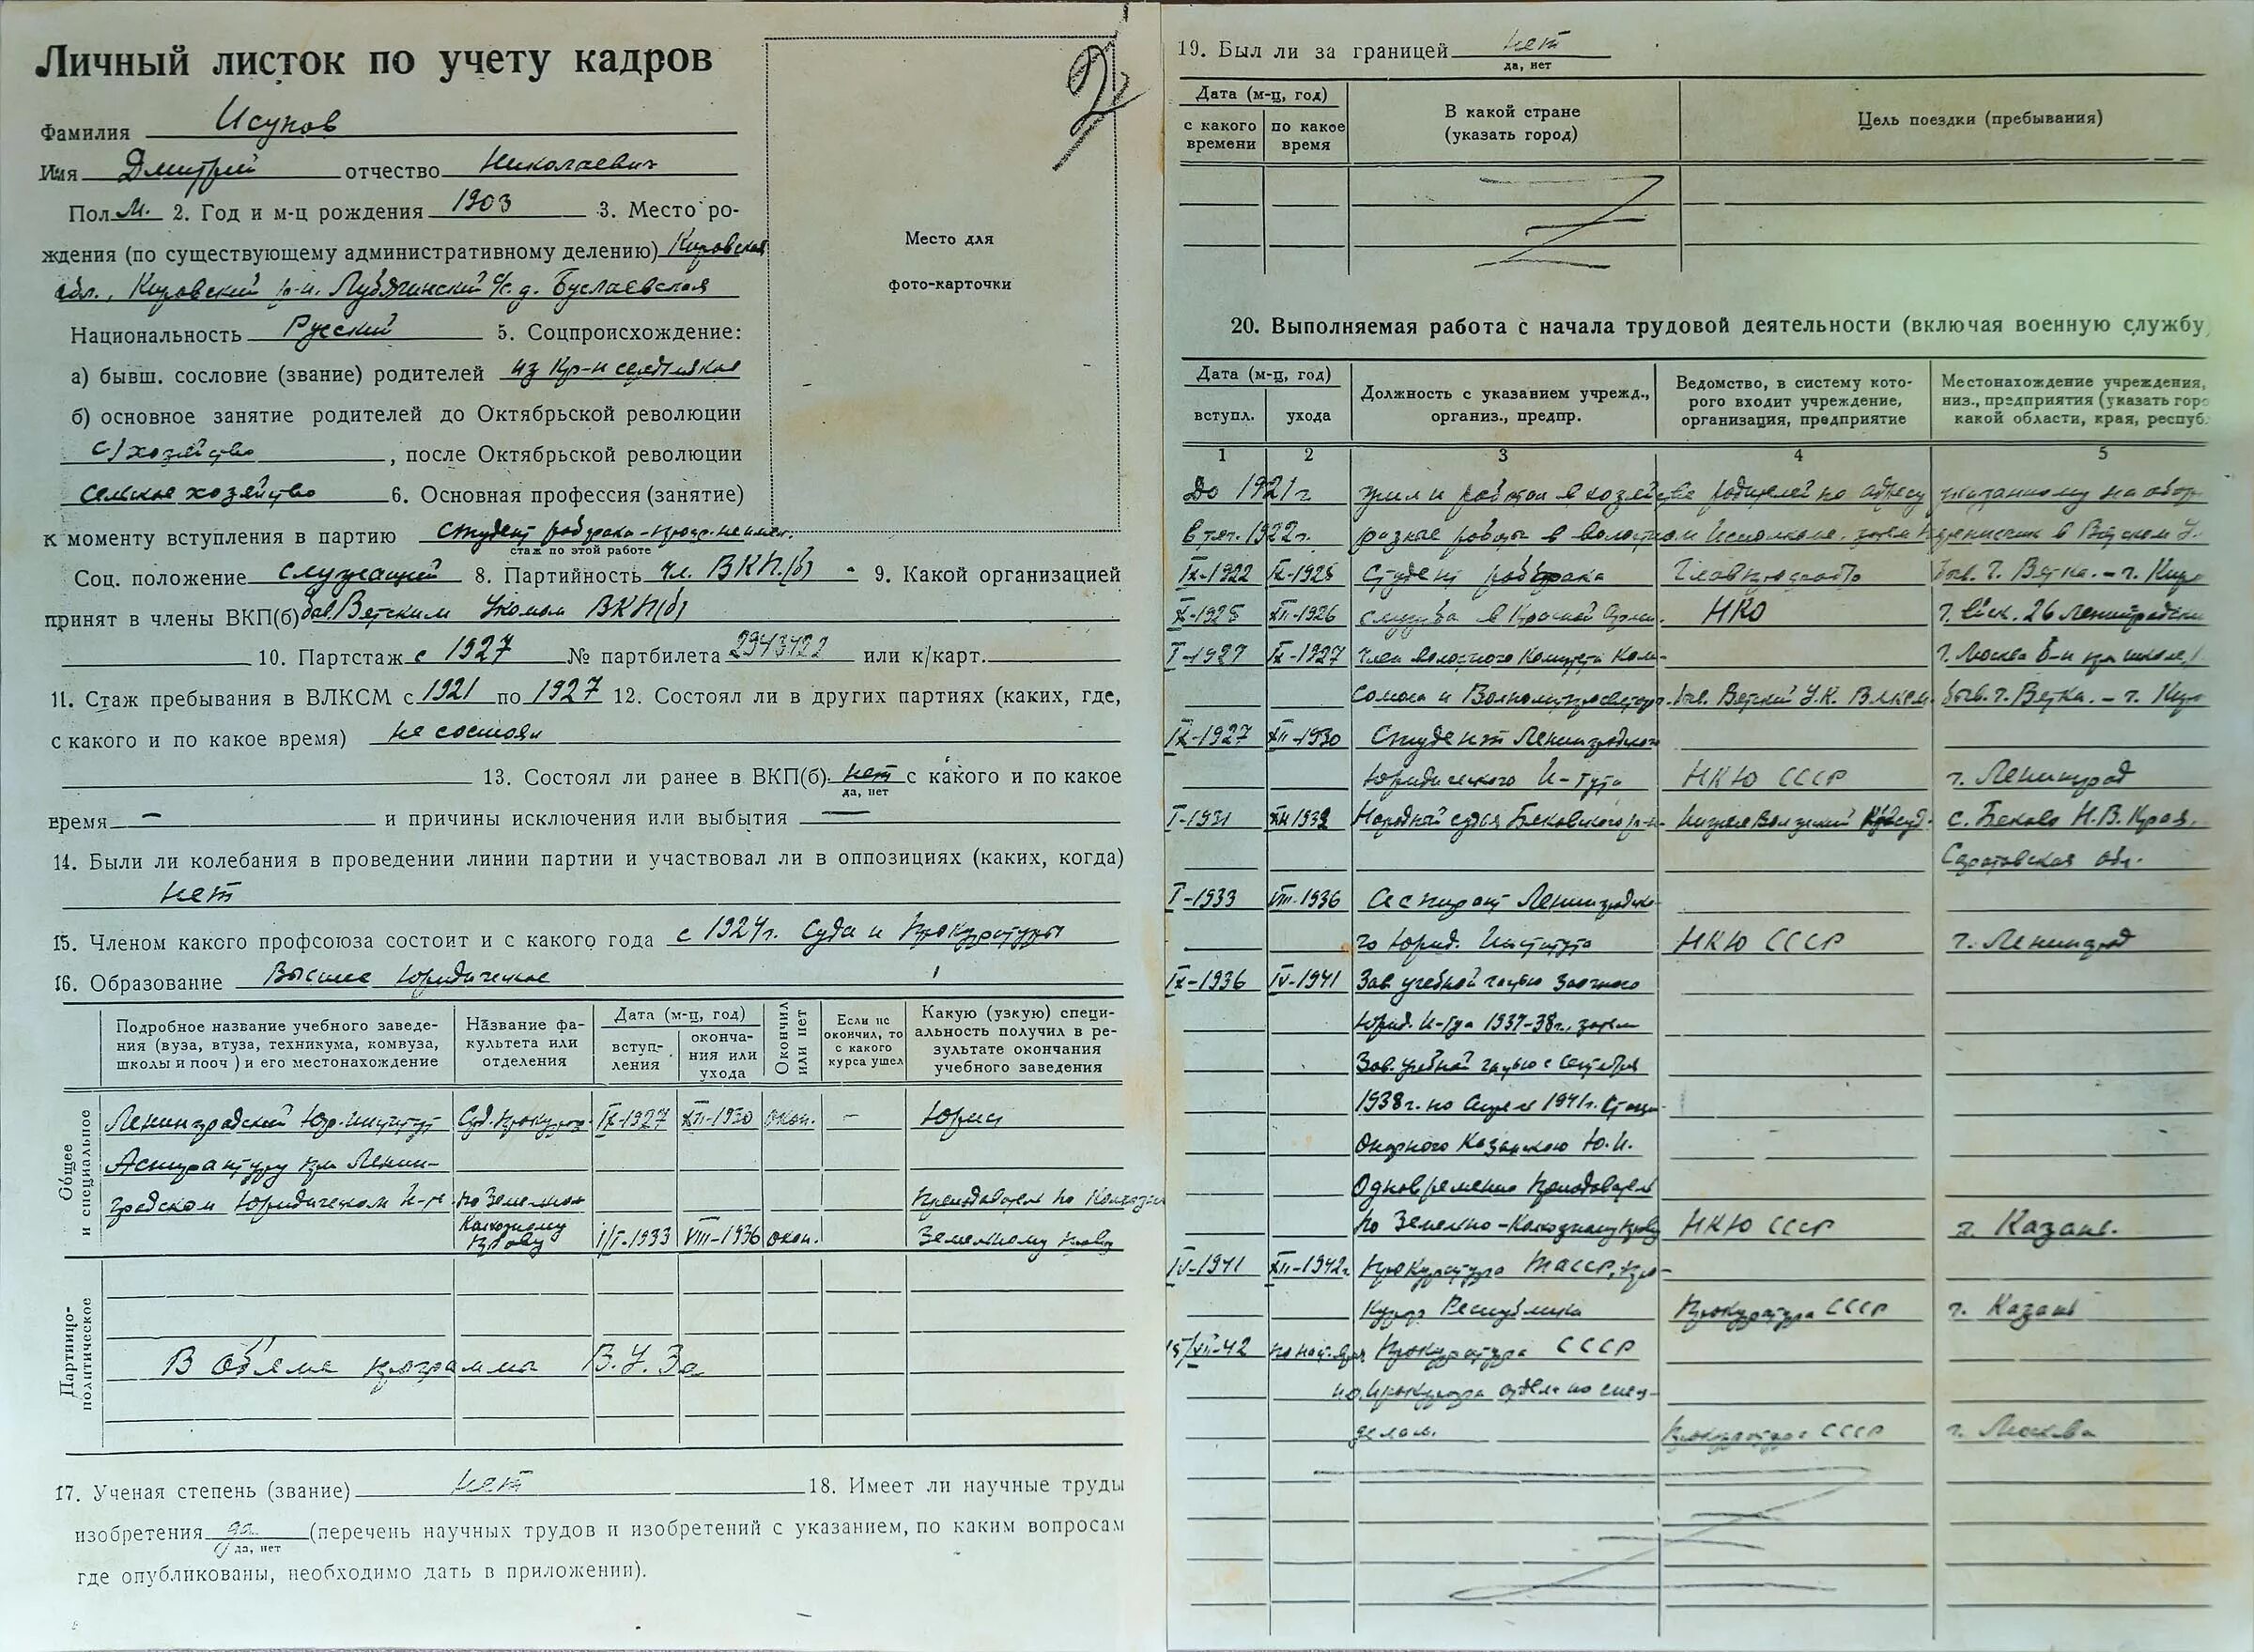 Личный листок по учету кадров
2
Фамилия Исупов
Имя Дмитрий отчество Николаевич
Пол М. 2. Год и м-ц рождения 1903 3. Место ро-
ждения (по существующему административному делению) Кировская
обл., Кировский р-н. Лубягинский с/с. д. Буслаевская
Национальность Русский 5. Соцпроисхождение:
а) бывш. сословие (звание) родителей из кр-н
б) основное занятие родителей до Октябрьской революции
с/хозяйство, после Октябрьской революции
сельское хозяйство 6. Основная профессия (занятие)
к моменту вступления в партию студент рабфака
стаж по этой работе
Соц. положение служащий 8. Партийность чл. ВКП(б) 9. Какой организацией
принят в члены ВКП(б) быв. Вятским Укомом ВКП(б)
10. Партстаж с 1927 № партбилета 2943122 или к/карт.
11. Стаж пребывания в ВЛКСМ с 1921 по 1927 12. Состоял ли в других партиях (каких, где,
с какого и по какое время) не состоял
13. Состоял ли ранее в ВКП(б) нет с какого и по какое
да, нет
время — и причины исключения или выбытия —
14. Были ли колебания в проведении линии партии и участвовал ли в оппозициях (каких, когда)
нет
15. Членом какого профсоюза состоит и с какого года с 1924г. Суда и Прокуратуры
16. Образование Высшее Юридическое
Общее и специальное
Подробное название учебного заведе-
ния (вуза, втуза, техникума, комвуза,
школы и пооч ) и его местонахождение
Название фа-
культета или
отделения
Дата (м-ц, год)
вступ-
ления
оконча-
ния или
ухода
Окончил
или нет
Если не
окончил, то
с какого
курса ушел
Какую (узкую) специ-
альность получил в ре-
зультате окончания
учебного заведения
Ленинградский Юр. институт Суд. прокурор. IX-1927 XII-1930 окон. — Юрист
Аспирантуру при Ленин-
градском Юридическом И-те по Земельно Преподаватель по
Колхозному
праву 1/I-1933 VIII-1936 окон. Земельному праву
Партийно-
политическое
В объеме программы В.У.За
17. Ученая степень (звание) нет 18. Имеет ли научные труды
изобретения да (перечень научных трудов и изобретений с указанием, по каким вопросам
да, нет
где опубликованы, необходимо дать в приложении).
19. Был ли за границей нет
да, нет
Дата (м-ц, год)
с какого
времени
по какое
время
В какой стране
(указать город)
Цель поездки (пребывания)
20. Выполняемая работа с начала трудовой деятельности (включая военную службу)
Дата (м-ц, год)
вступл.
ухода
Должность с указанием учрежд.,
организ., предпр.
Ведомство, в систему кото-
рого входит учреждение,
организация, предприятие
Местонахождение учреждения,
низ., предприятия (указать горо
какой области, края, респуб.
1 2 3 4 5
До 1921г жил и работал в хозяйстве родителей по адресу указанному на обор
1922г. разные работы в волостном Исполкоме, затем в Вятском У.
IX-1922 IX-1925 Студент рабфака Главпрофобр быв. г. Вятка. - г. Киро
X-1925 XII-1926 служба в Красной Армии. НКО 26 Ленинградски
I-1927 IX-1927 Член волостного Комитета Ком-
сомола и быв. Вятский У.К. ВЛКСМ. быв. г. Вятка. - г. Кир
IX-1927 XII-1930 Студент Ленинградского
Юридического И-тута НКЮ СССР г. Ленинград
I-1931 XII 1932 Народный судья Бековского р-н- Нижне Волжский Крайсуд. с. Беково Н.В. Края.
Саратовская обл.
I-1933 VIII-1936 Аспирант Ленинградско-
го Юрид. Института НКЮ СССР г. Ленинград
IX-1936 IV-1941 Зав. учебной частью Заочного
Юрид. И-та 1937-38г., затем
Зав. учебной частью с Сентября
1938г. по Апрель 1941г. Стаци-
онарного Казанского Ю.И.
Одновременно преподаватель
по Земельно-Колхозному праву НКЮ СССР г. Казань.
IV-1941 XII-1942г Прокуратура ТАССР, про-
курор Республики Прокуратура СССР г. Казань
по наст. вр. Прокуратура СССР
по. прокурора отдела по спец-
делам. Прокуратура СССР г. Москва